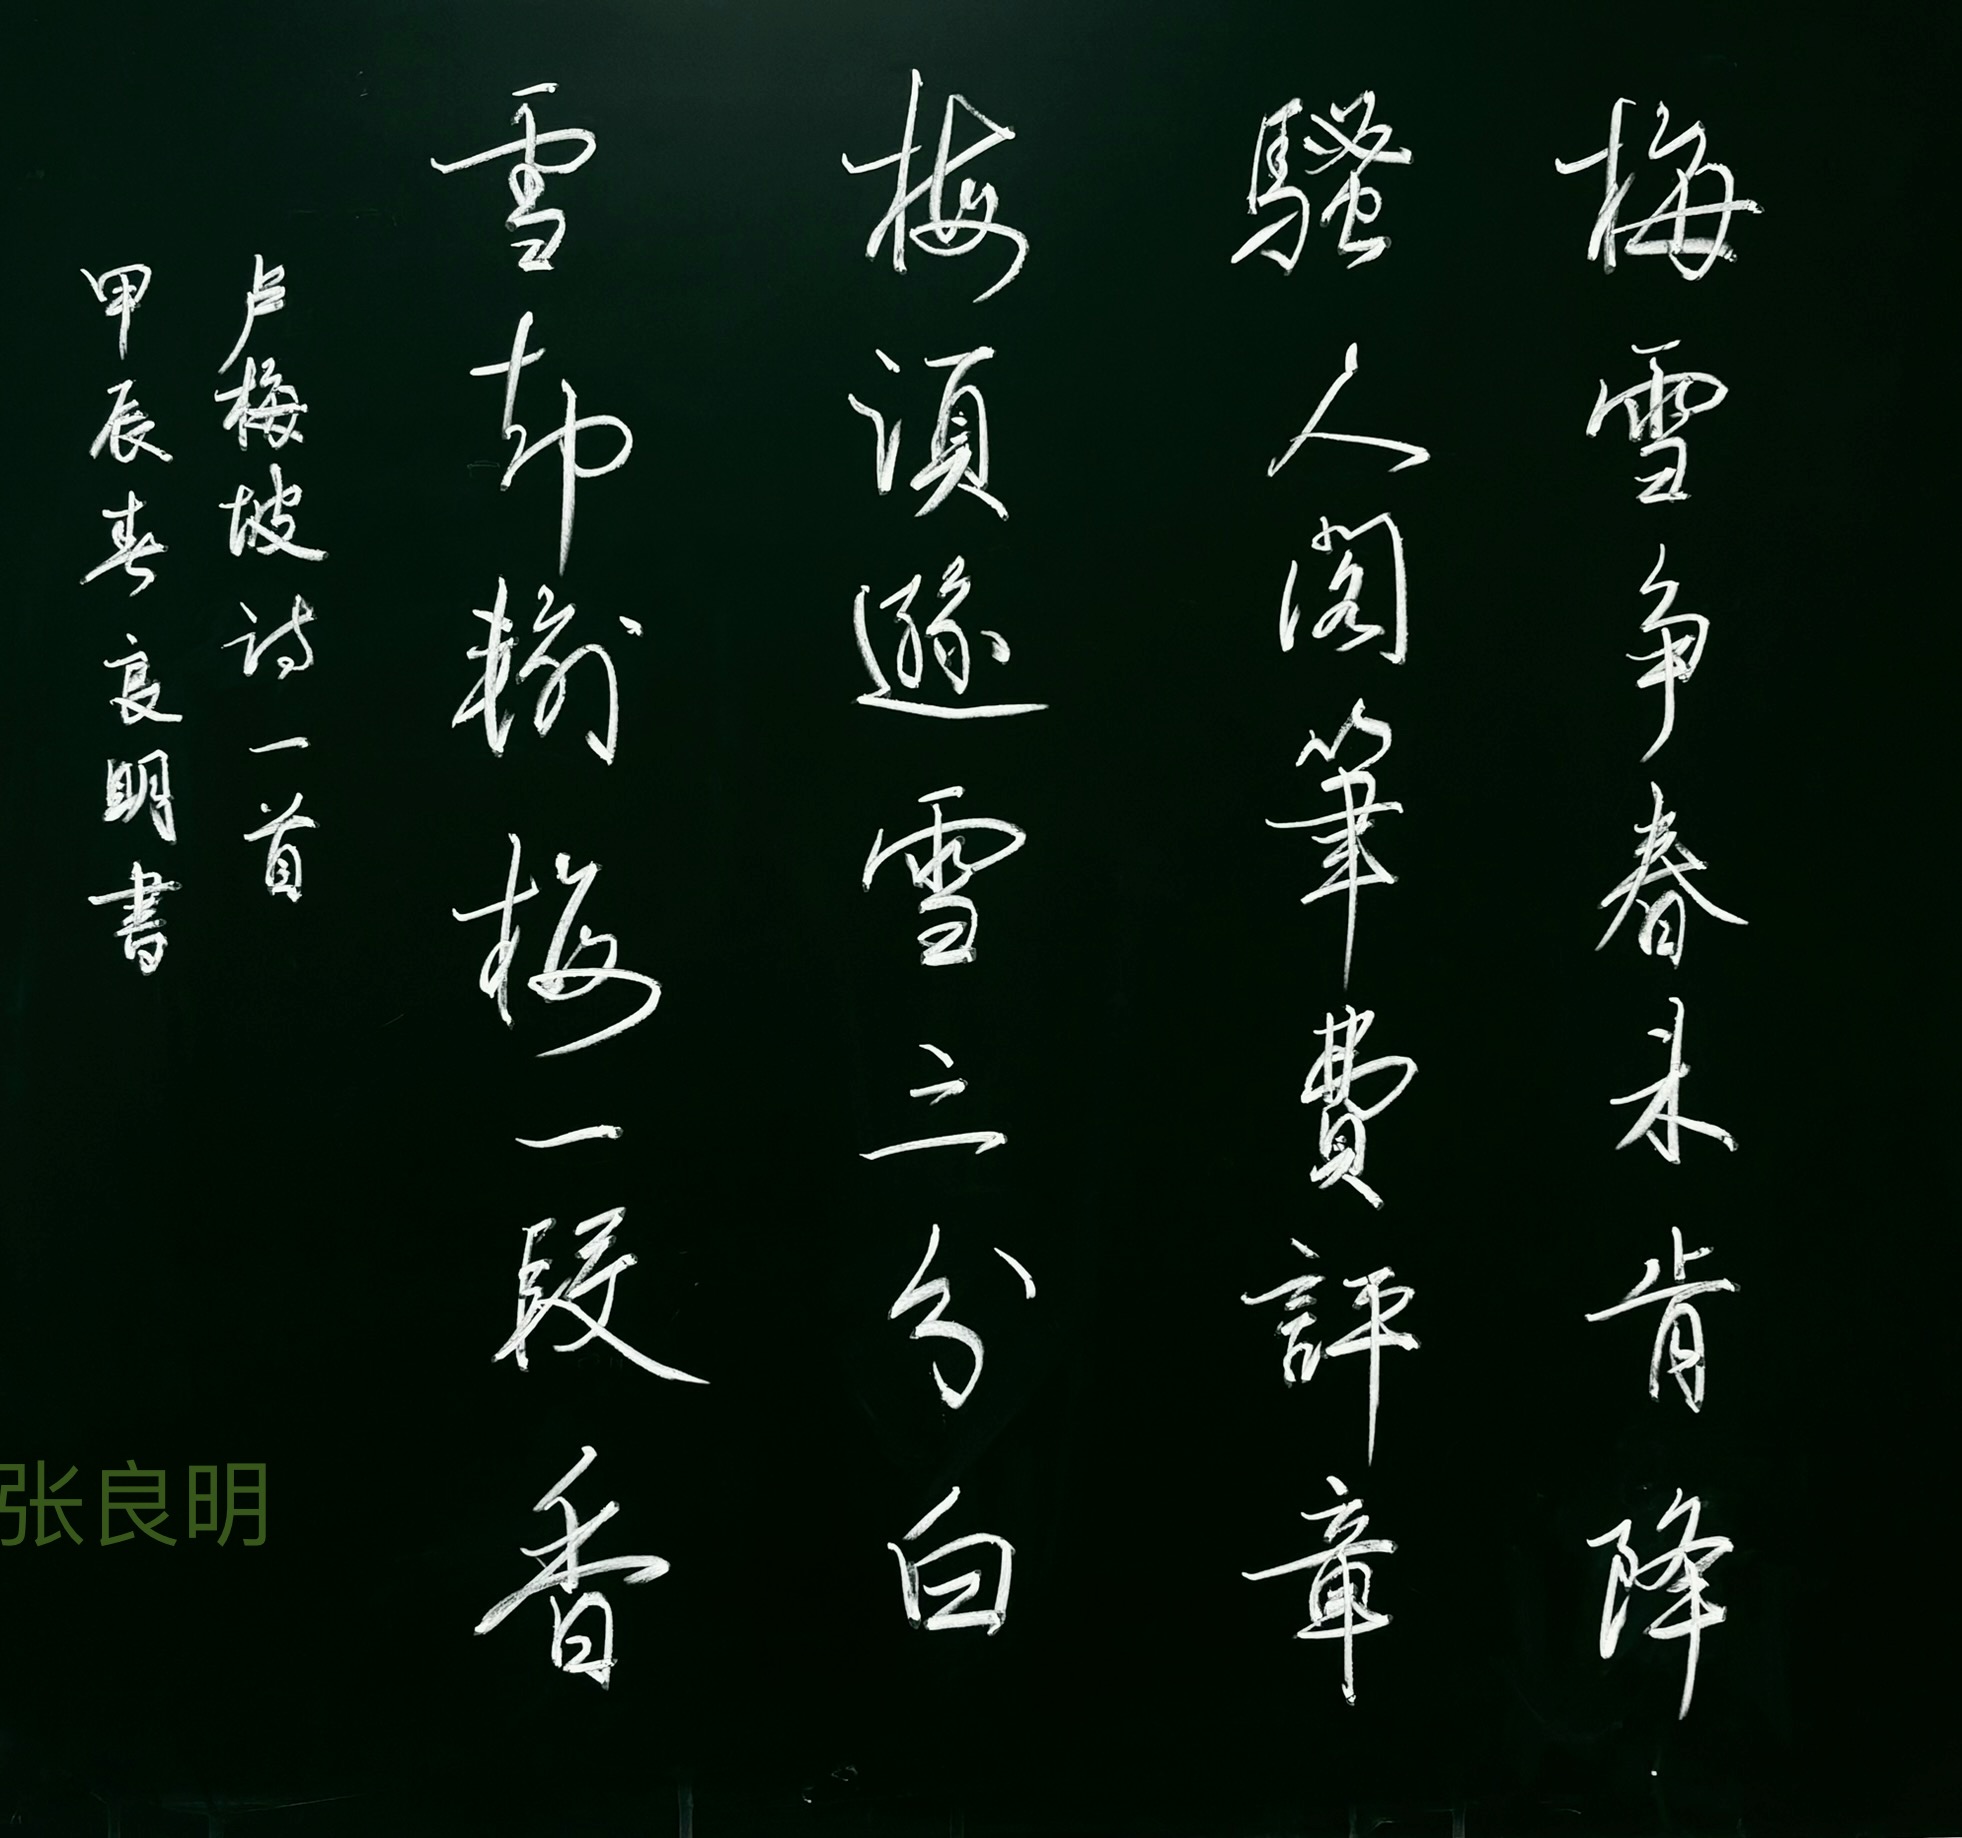 梅雪争春未肯降
騷人閣筆費評章
梅須遜雪三分白
雪却輸梅一段香
卢梅坡詩一首
甲辰春良明書
张良明